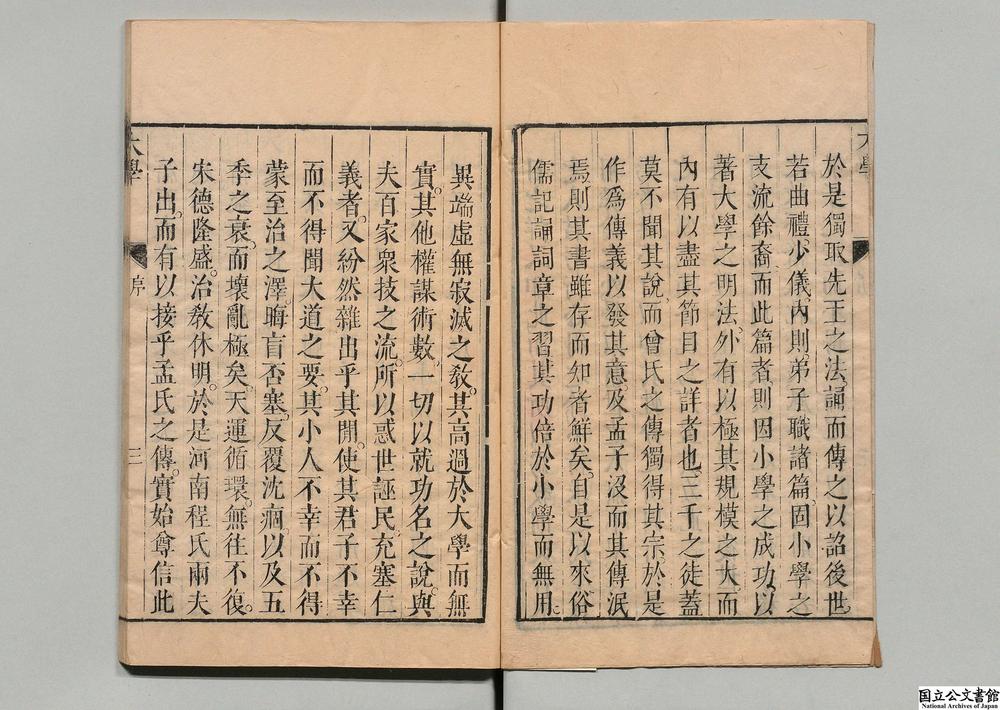 大學
於是獨取先王之法誦而傳之以詔後世。
若曲禮。少儀。內則。弟子職諸篇。固小學之
支流餘裔。而此篇者。則因小學之成功。以
著大學之明法。外有以極其規模之大。而
內有以盡其節目之詳者也。三千之徒。蓋
莫不聞其說。而曾氏之傳獨得其宗。於是
作爲傳義以發其意。及孟子沒而其傳泯
焉。則其書雖存而知者鮮矣。自是以來。俗
儒記誦詞章之習。其功倍於小學而無用。
異端虛無寂滅之敎。其高過於大學而無
實。其他權謀術數。一切以就功名之說。與
夫百家衆技之流。所以惑世誣民。充塞仁
義者。又紛然雜出乎其閒。使其君子不幸
而不得聞大道之要。其小人不幸而不得
蒙至治之澤。晦盲否塞。反覆沈痼。以及五
季之衰。而壞亂極矣。天運循環。無往不復。
宋德隆盛。治敎休明。於是河南程氏兩夫
子出。而有以接乎孟氏之傳。實始尊信此
大學 序 三
国立公文書館
National Archives of Japan